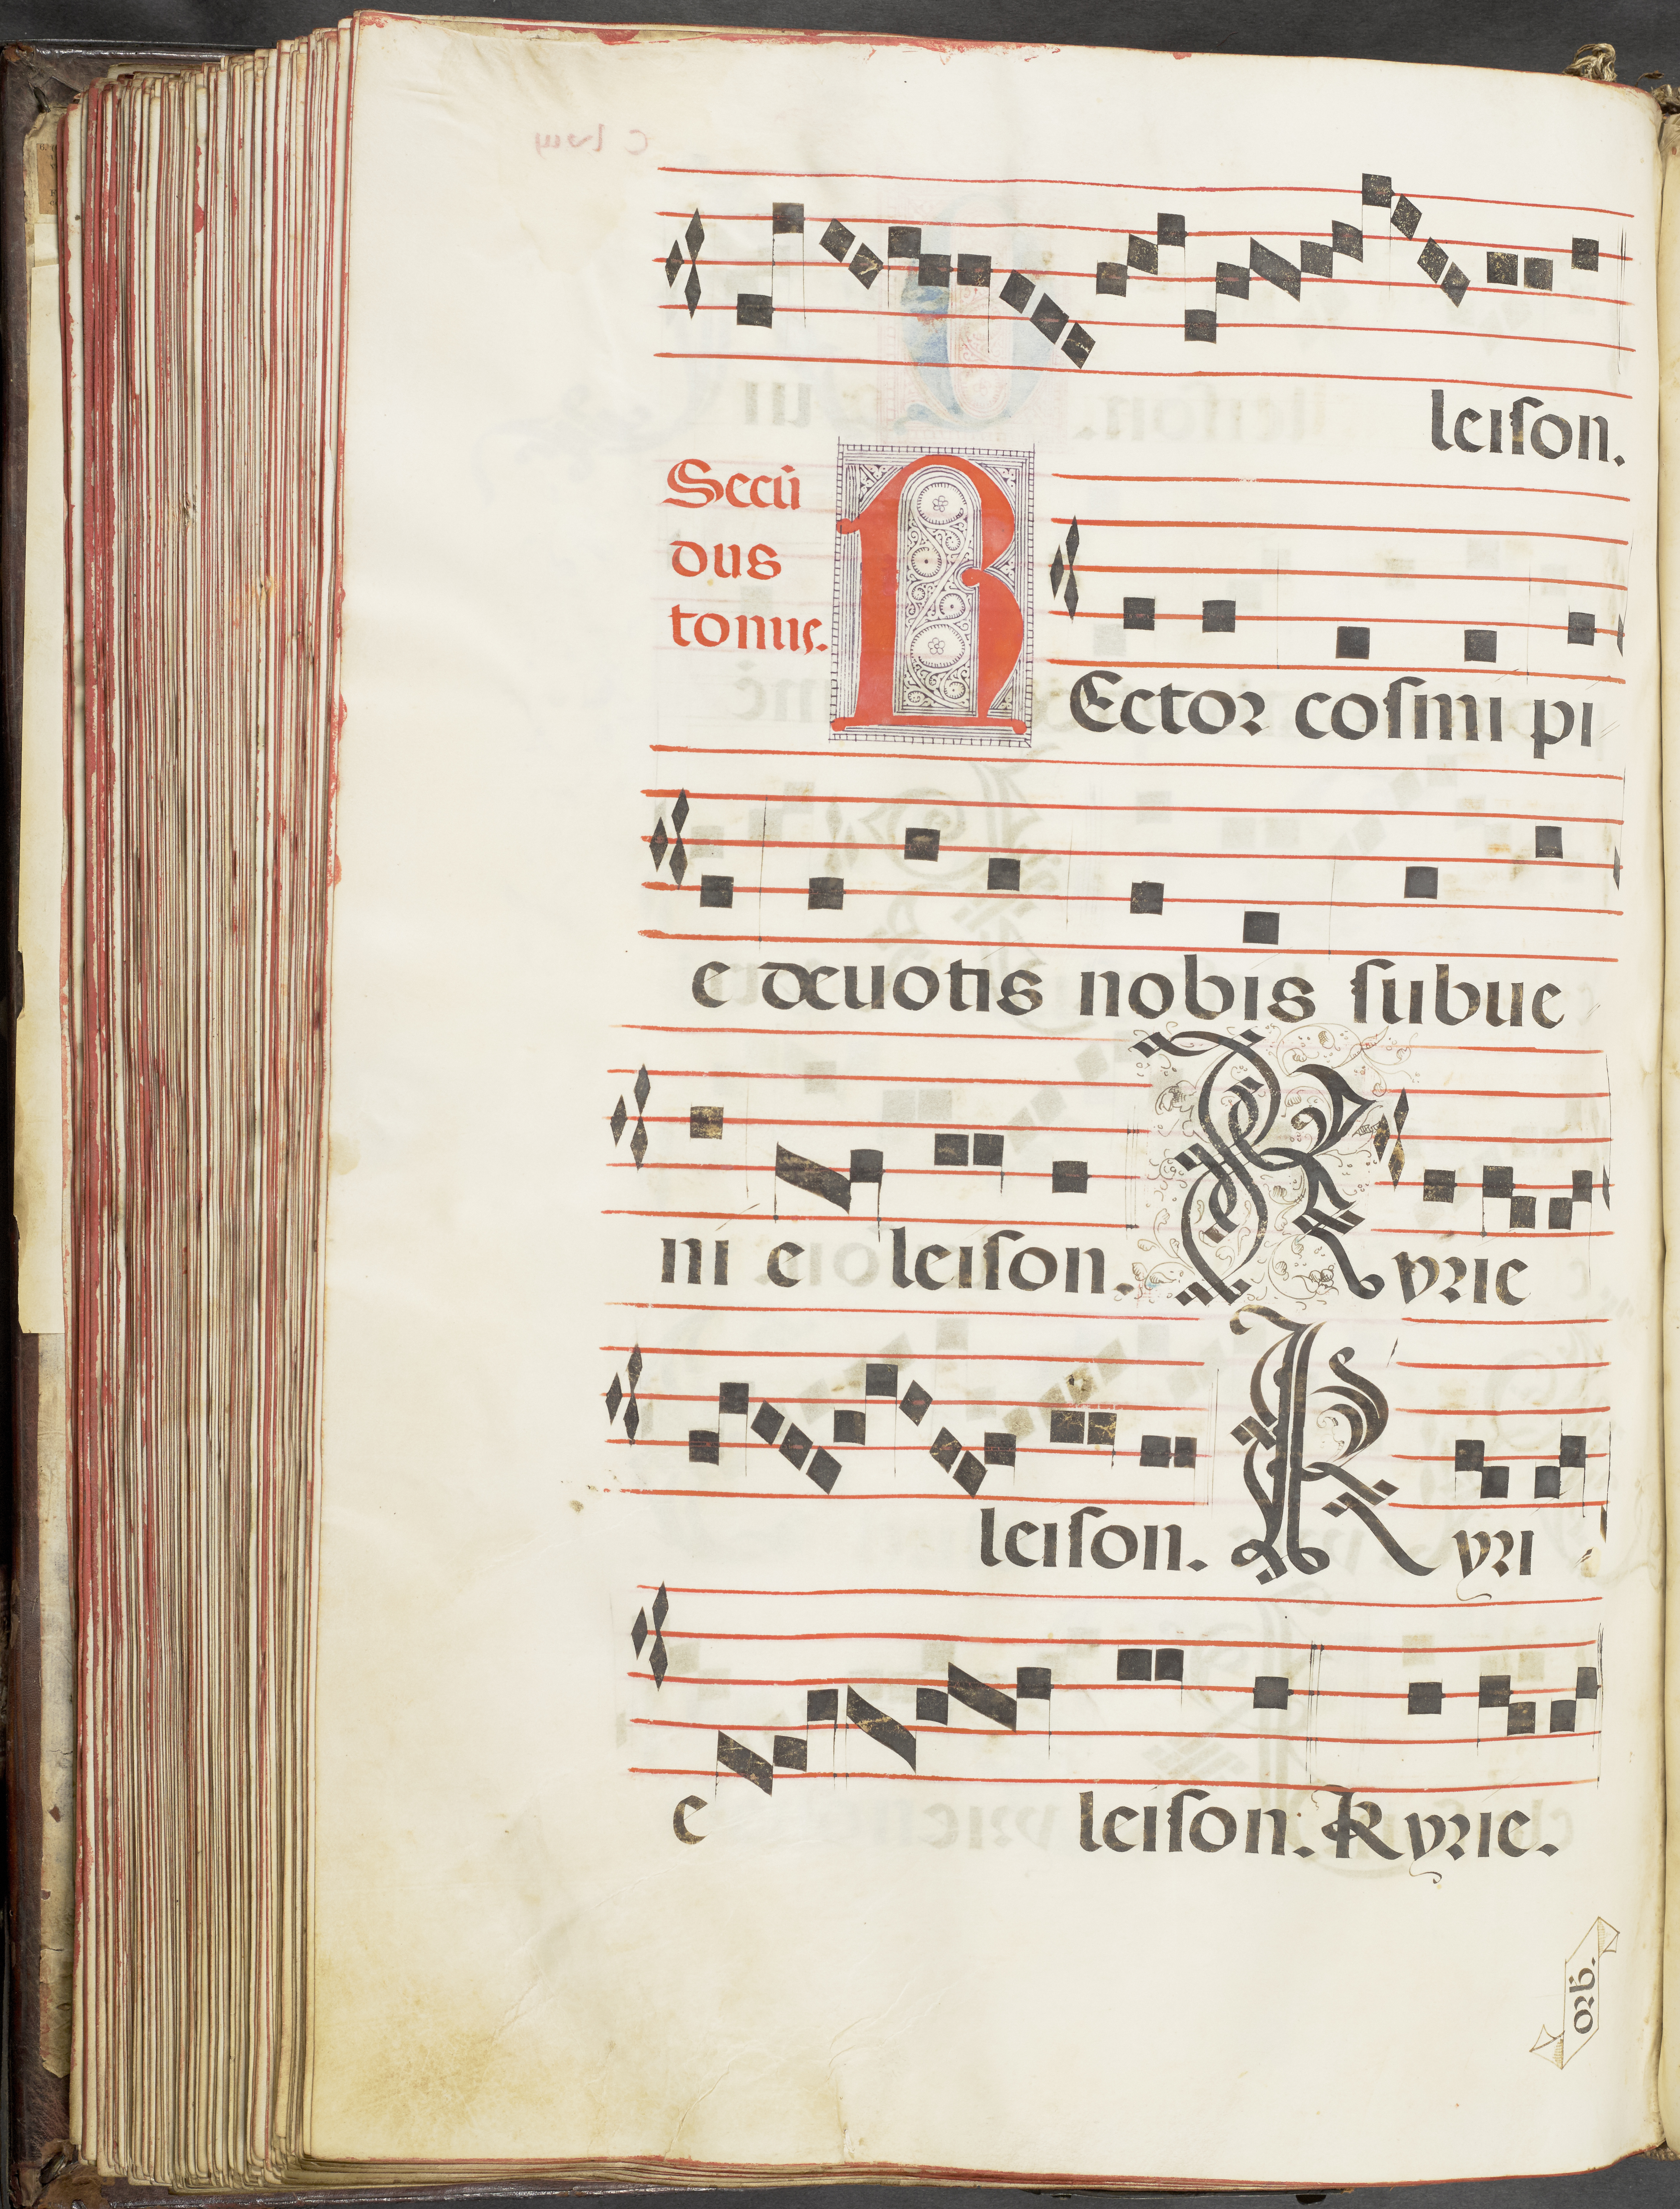 leiſon.
Secū
dus
tonus.
REctor coſmi pi
e deuotis nobis ſubue
ni e leiſon. Kyrie
leiſon. Kyri
e leiſon. Kyrie.
orb.